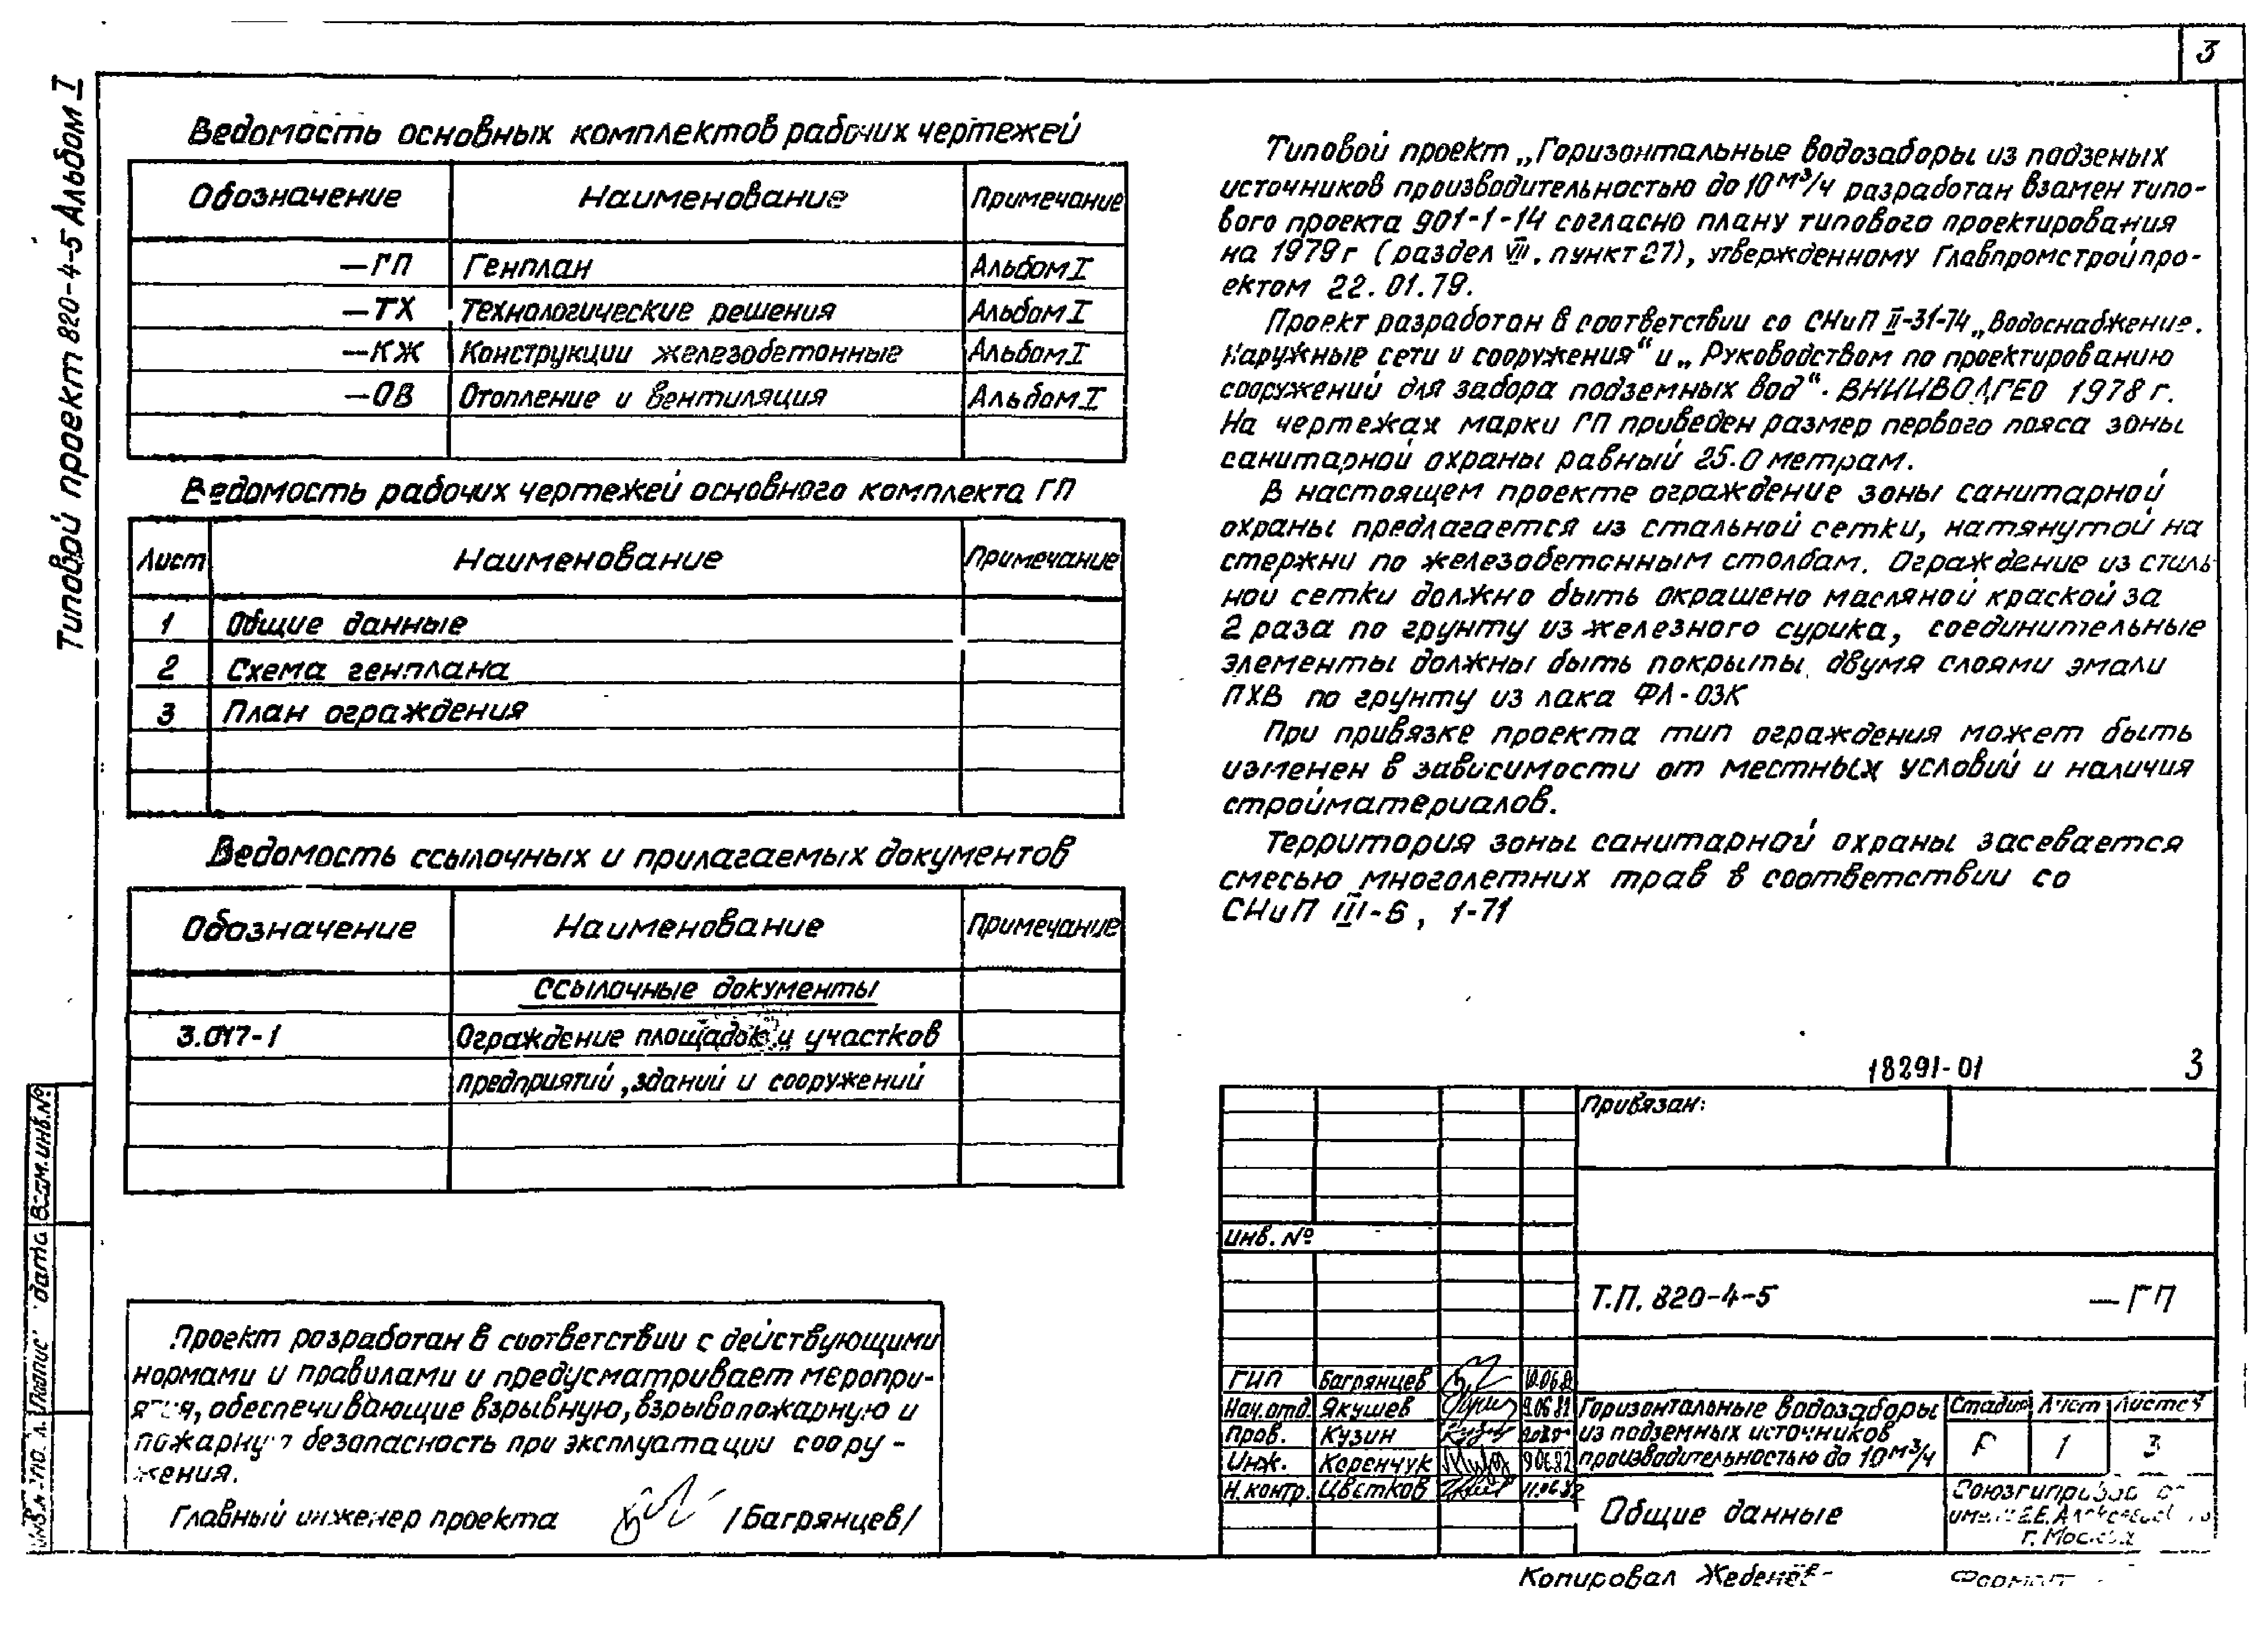 3
Типовой проект 820-4-5 Альбом I
Ведомость основных комплектов рабочих чертежей
Обозначение Наименование Примечание
—ГП Генплан Альбом I
—ТХ Технологические решения Альбом I
—КЖ Конструкции железобетонные Альбом I
—ОВ Отопление и вентиляция Альбом I
Ведомость рабочих чертежей основного комплекта ГП
Лист Наименование Примечание
1 Общие данные
2 Схема генплана
3 План ограждения
Ведомость ссылочных и прилагаемых документов
Обозначение Наименование Примечание
Ссылочные документы
3.017-1 Ограждение площадок и участков
предприятий, зданий и сооружений
Проект разработан в соответствии с действующими
нормами и правилами и предусматривает меропри-
ятия, обеспечивающие взрывную, взрывопожарную и
пожарную безопасность при эксплуатации соору-
жения.
Главный инженер проекта /Багрянцев/
Типовой проект „Горизонтальные водозаборы из подземых
источников производительностью до 10 м³/ч разработан взамен типо-
вого проекта 901-1-14 согласно плану типового проектирования
на 1979г (раздел VIII, пункт 27), утвержденному Главпромстройпро-
ектом 22.01.79.
Проект разработан в соответствии со СНиП II-31-74 „Водоснабжение.
Наружные сети и сооружения“ и „Руководством по проектированию
сооружений для забора подземных вод“. ВНИИВОДГЕО 1978 г.
На чертежах марки ГП приведен размер первого пояса зоны
санитарной охраны равный 25.0 метрам.
В настоящем проекте ограждение зоны санитарной
охраны предлагается из стальной сетки, натянутой на
стержни по железобетонным столбам. Ограждение из сталь
ной сетки должно быть окрашено масляной краской за
2 раза по грунту из железного сурика, соединительные
элементы должны быть покрыты двумя слоями эмали
ПХВ по грунту из лака ФЛ-03К
При привязке проекта тип ограждения может быть
изменен в зависимости от местных условий и наличия
стройматериалов.
Территория зоны санитарной охраны засевается
смесью многолетних трав в соответствии со
СНиП III-Б, 1-71
18291-01 3
Привязан:
Инв. №
Т.П. 820-4-5 —ГП
ГИП Багрянцев
Нач.отд. Якушев
Пров. Кузин
Инж. Коренчук 9.06.82
Н.контр. Цветков 11.06.82
Горизонтальные водозаборы
из подземных источников
производительностью до 10 м³/ч
Стадия Лист Листов
Р 1 3
Общие данные
г. Москва
Копировал Жебенёв
Формат
Взам. инв. №
дата